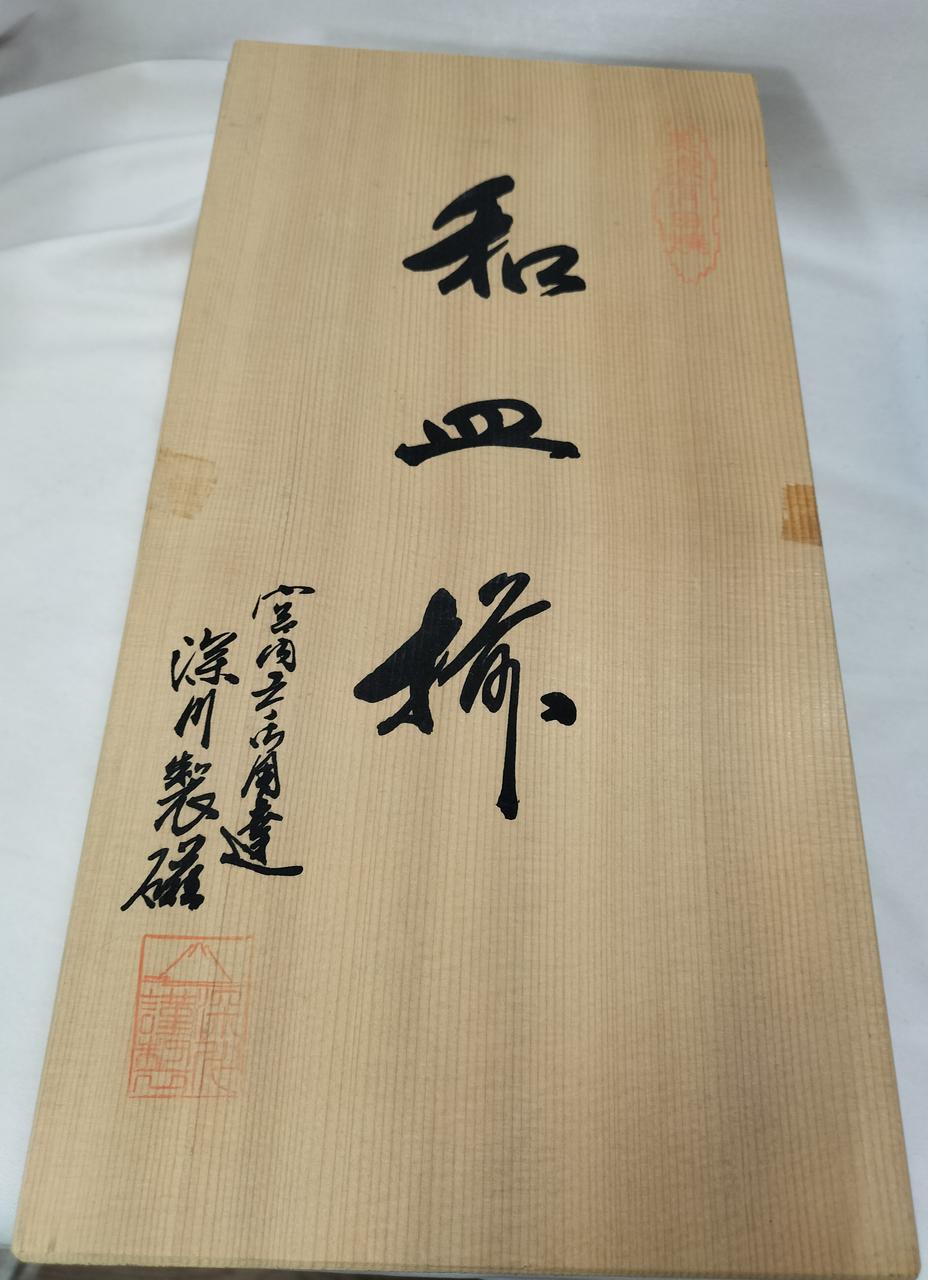 和皿揃
宮内庁御用達
深川製磁
深川
謹製